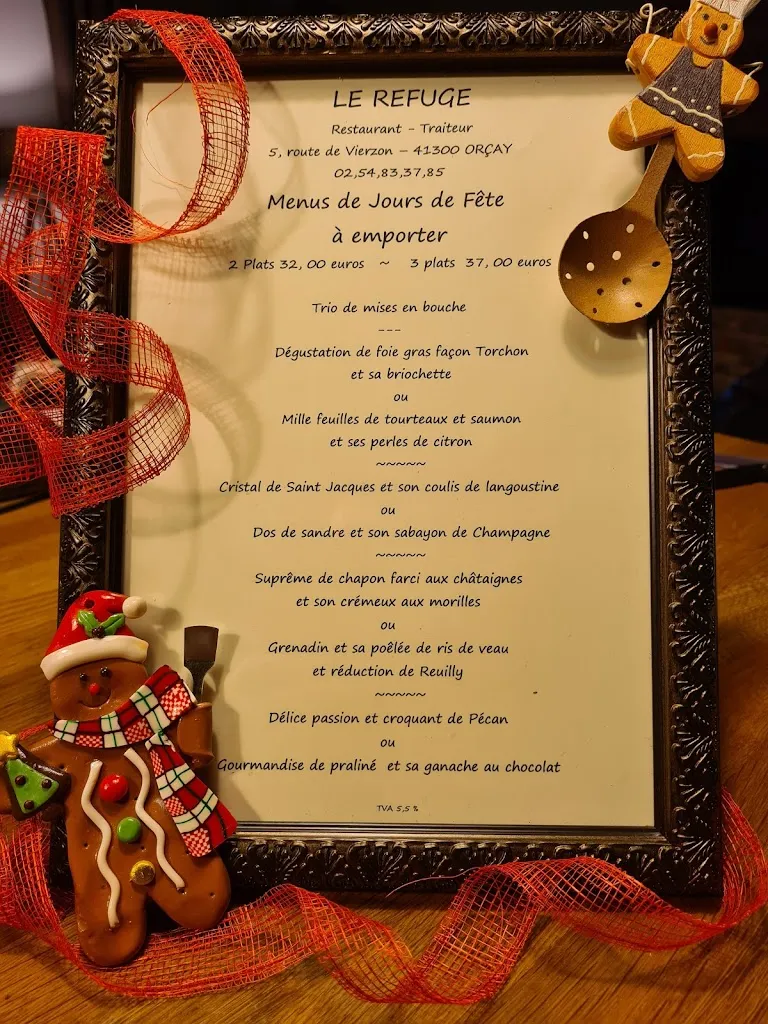 LE REFUGE
Restaurant - Traiteur
5, route de Vierzon – 41300 ORÇAY
02,54,83,37,85
Menus de Jours de Fête
à emporter
2 Plats 32, 00 euros ~ 3 plats 37, 00 euros
Trio de mises en bouche
---
Dégustation de foie gras façon Torchon
et sa briochette
ou
Mille feuilles de tourteaux et saumon
et ses perles de citron
~~~~~
Cristal de Saint Jacques et son coulis de langoustine
ou
Dos de sandre et son sabayon de Champagne
~~~~~
Suprême de chapon farci aux châtaignes
et son crémeux aux morilles
ou
Grenadin et sa poêlée de ris de veau
et réduction de Reuilly
~~~~~
Délice passion et croquant de Pécan
ou
Gourmandise de praliné et sa ganache au chocolat
TVA 5,5 %